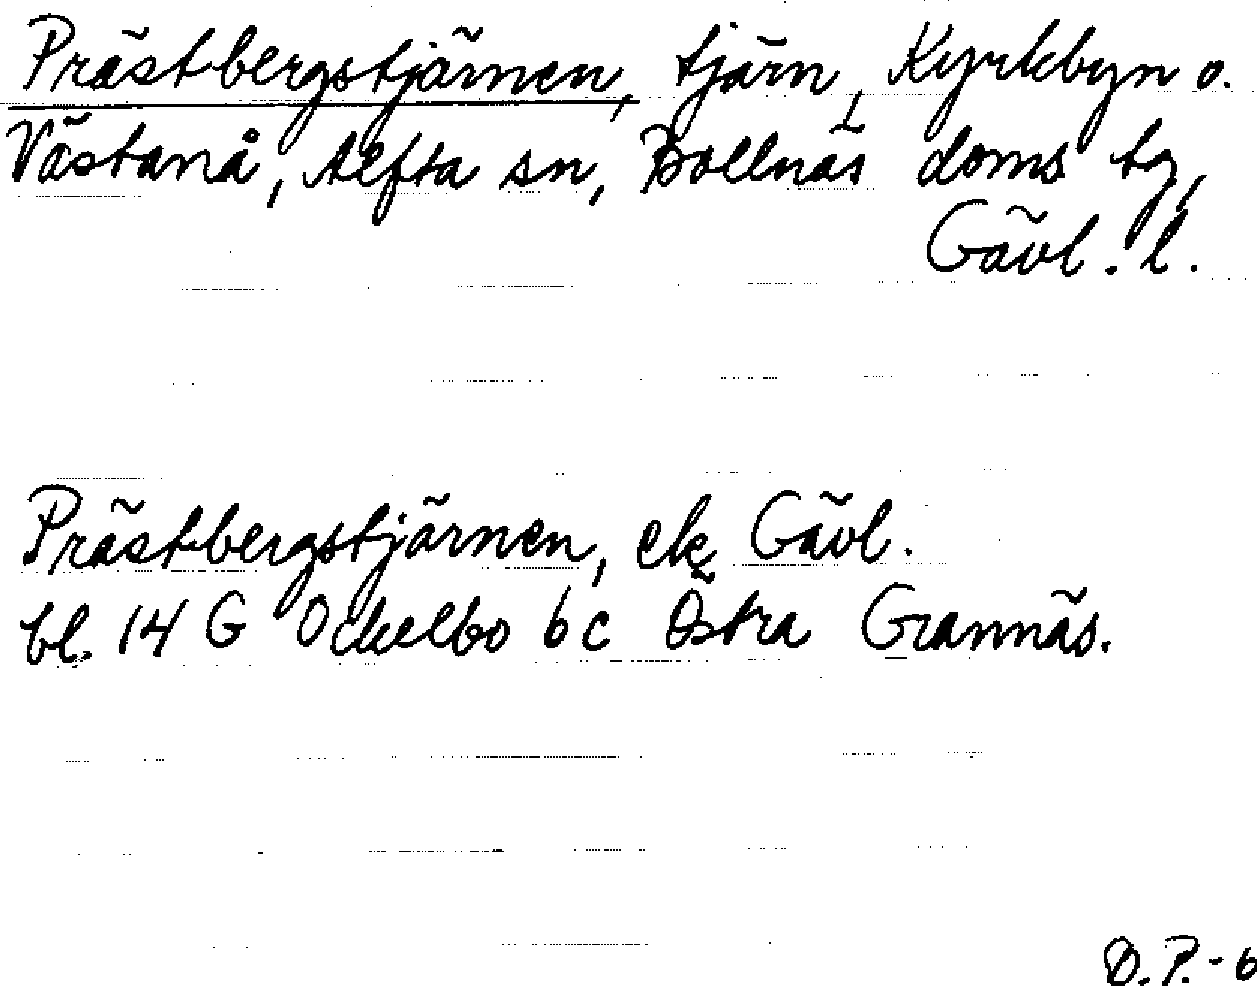 Prästbergstjärnen, tjärn, Kyrkbyn o.
Västanå, Alfta sn, Bollnäs doms tg,
Gävl. l.
Prästbergstjärnen, ek Gävl.
bl. 14 G Ockelbo 6c Östra Grannäs.
D.P.-6